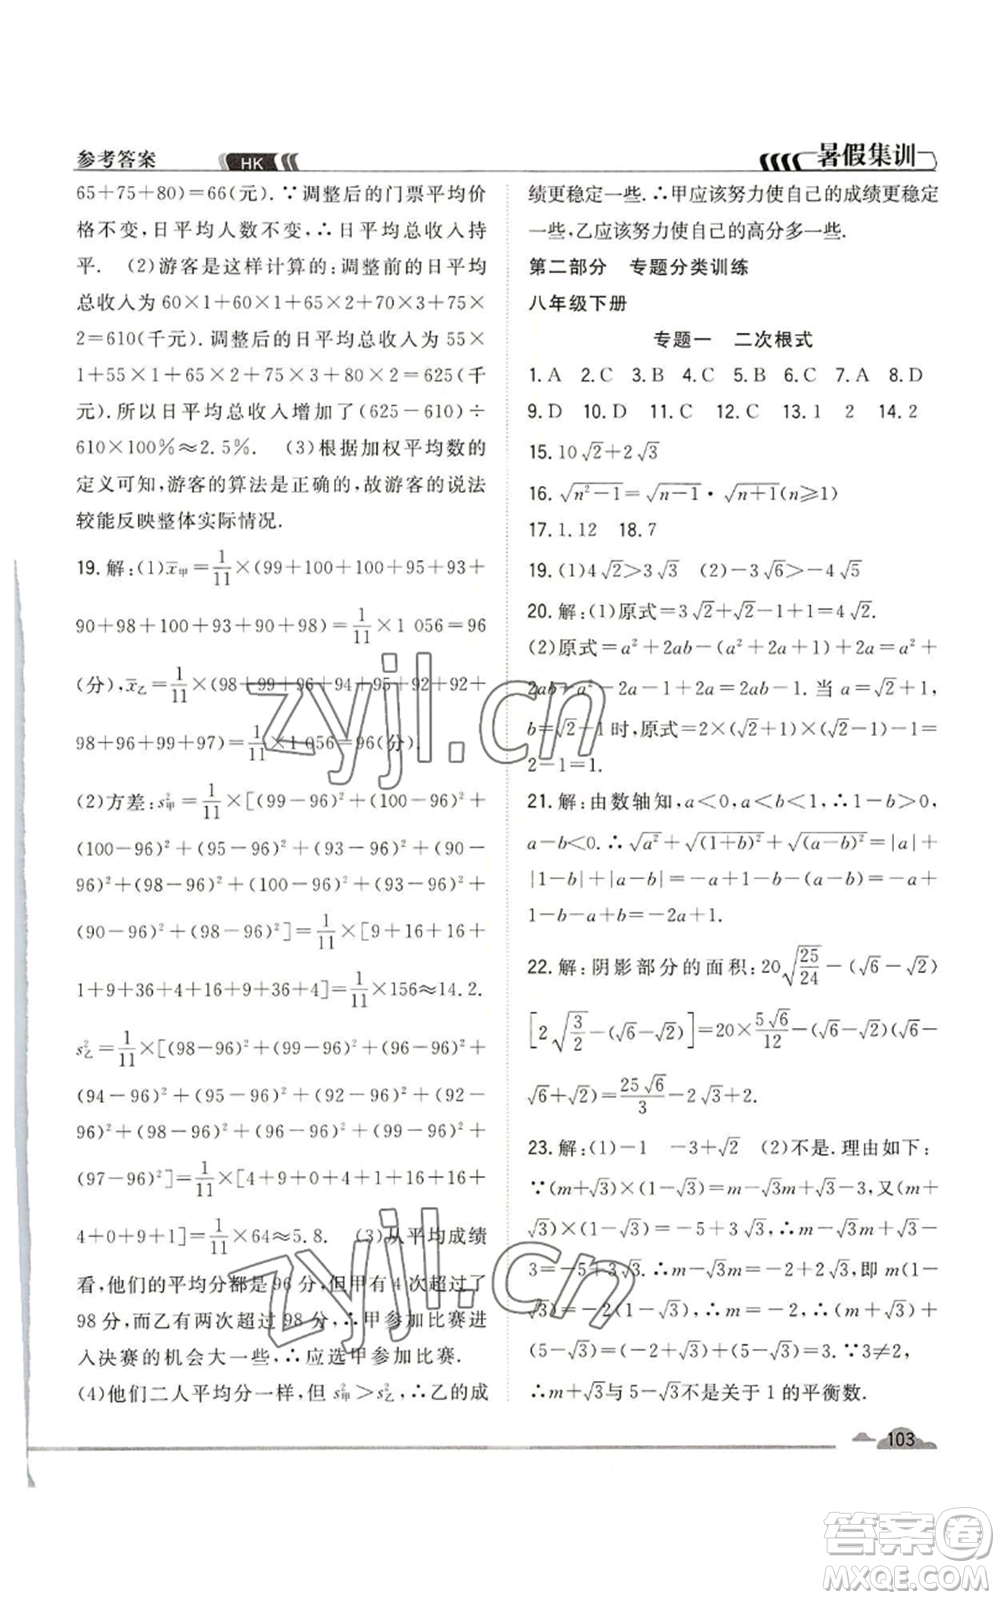 参考答案
HK
暑假集训
65+75+80)=66(元).∵调整后的门票平均价
格不变,日平均人数不变,∴平均总收入持
平. (2)游客是这样计算的:调整前的日平均
总收入为 60×1+60×1+65×2+70×3+75×
2=610(千元).调整后的日平均总收入为 55×
1+55×1+65×2+75×3+80×2=625(千
元).所以日平均总收入增加了(625-610)÷
610×100%≈2.5%. (3)根据加权平均数的
定义可知,游客的算法是正确的,故游客的说法
较能反映整体实际情况.
19.解:(1)x̄甲=1/11×(99+100+100+95+93+
90+98+100+93+90+98)=1/11×1 056=96
(分),x̄乙=1/11×(98+99+96+94+95+92+92+
98+96+99+97)=1/11×1 056=96(分).
(2)方差:s²甲=1/11×[(99-96)²+(100-96)²+
(100-96)²+(95-96)²+(93-96)²+(90-
96)²+(98-96)²+(100-96)²+(93-96)²+
(90-96)²+(98-96)²]=1/11×[9+16+16+
1+9+36+4+16+9+36+4]=1/11×156≈14.2.
s²乙=1/11×[(98-96)²+(99-96)²+(96-96)²+
(94-96)²+(95-96)²+(92-96)²+
(92-96)²+(98-96)²+(96-96)²+(99-96)²+
(97-96)²]=1/11×[4+9+0+4+1+16+16+
4+0+9+1]=1/11×64≈5.8. (3)从平均成绩
看,他们的平均分都是96分,但甲有4次超过了
98分,而乙有两次超过98分,∴甲参加比赛进
入决赛的机会大一些,∴应选甲参加比赛.
(4)他们二人平均分一样,但 s²甲>s²乙,∴乙的成
绩更稳定一些.∴甲应该努力使自己的成绩更稳定
一些,乙应该努力使自己的高分多一些.
第二部分 专题分类训练
八年级下册
专题一 二次根式
1.A 2.C 3.B 4.C 5.B 6.C 7.A 8.D
9.D 10.D 11.C 12.C 13.1 2 14.2
15.10√2+2√3
16.√(n²-1)=√(n-1)·√(n+1)(n⩾1)
17.1.12 18.7
19.(1)4√2>3√3 (2)-3√6>-4√5
20.解:(1)原式=3√2+√2-1+1=4√2.
(2)原式=a²+2ab-(a²+2a+1)+a²=a²+
2ab+a²-2a-1+a²=2ab-1.当 a=√2+1,
b=√2-1时,原式=2×(√2+1)×(√2-1)-1=
2-1=1.
21.解:由数轴知,a<0,a<b<1,∴1-b>0,
a-b<0.∴√a²+√(1+b)²+√(a-b)²=|a|+
|1-b|+|a-b|=-a+1-b-(a-b)=-a+
1-b-a+b=-2a+1.
22.解:阴影部分的面积:20√(25/24)-(√6-√2)
[2√(3/2)-(√6-√2)]=20×5√6/12-(√6-√2)(√6-
√6+√2)=25√6/3-2√3+2.
23.解:(1)-1 -3+√2 (2)不是.理由如下:
∵(m+√3)×(1-√3)=m-√3m+√3-3,又(m+
√3)×(1-√3)=-5+3√3,∴m-√3m+√3-
3=-5+3√3.∴m-√3m=-2+2√3,即 m(1-
√3)=-2(1-√3).∴m=-2,∴(m+√3)+
(5-√3)=(-2+√3)+(5-√3)=3.∵3≠2,
∴m+√3与5-√3不是关于1的平衡数.
103
zyjl.cn
zyjl.cn
答案圈
MXQE.COM